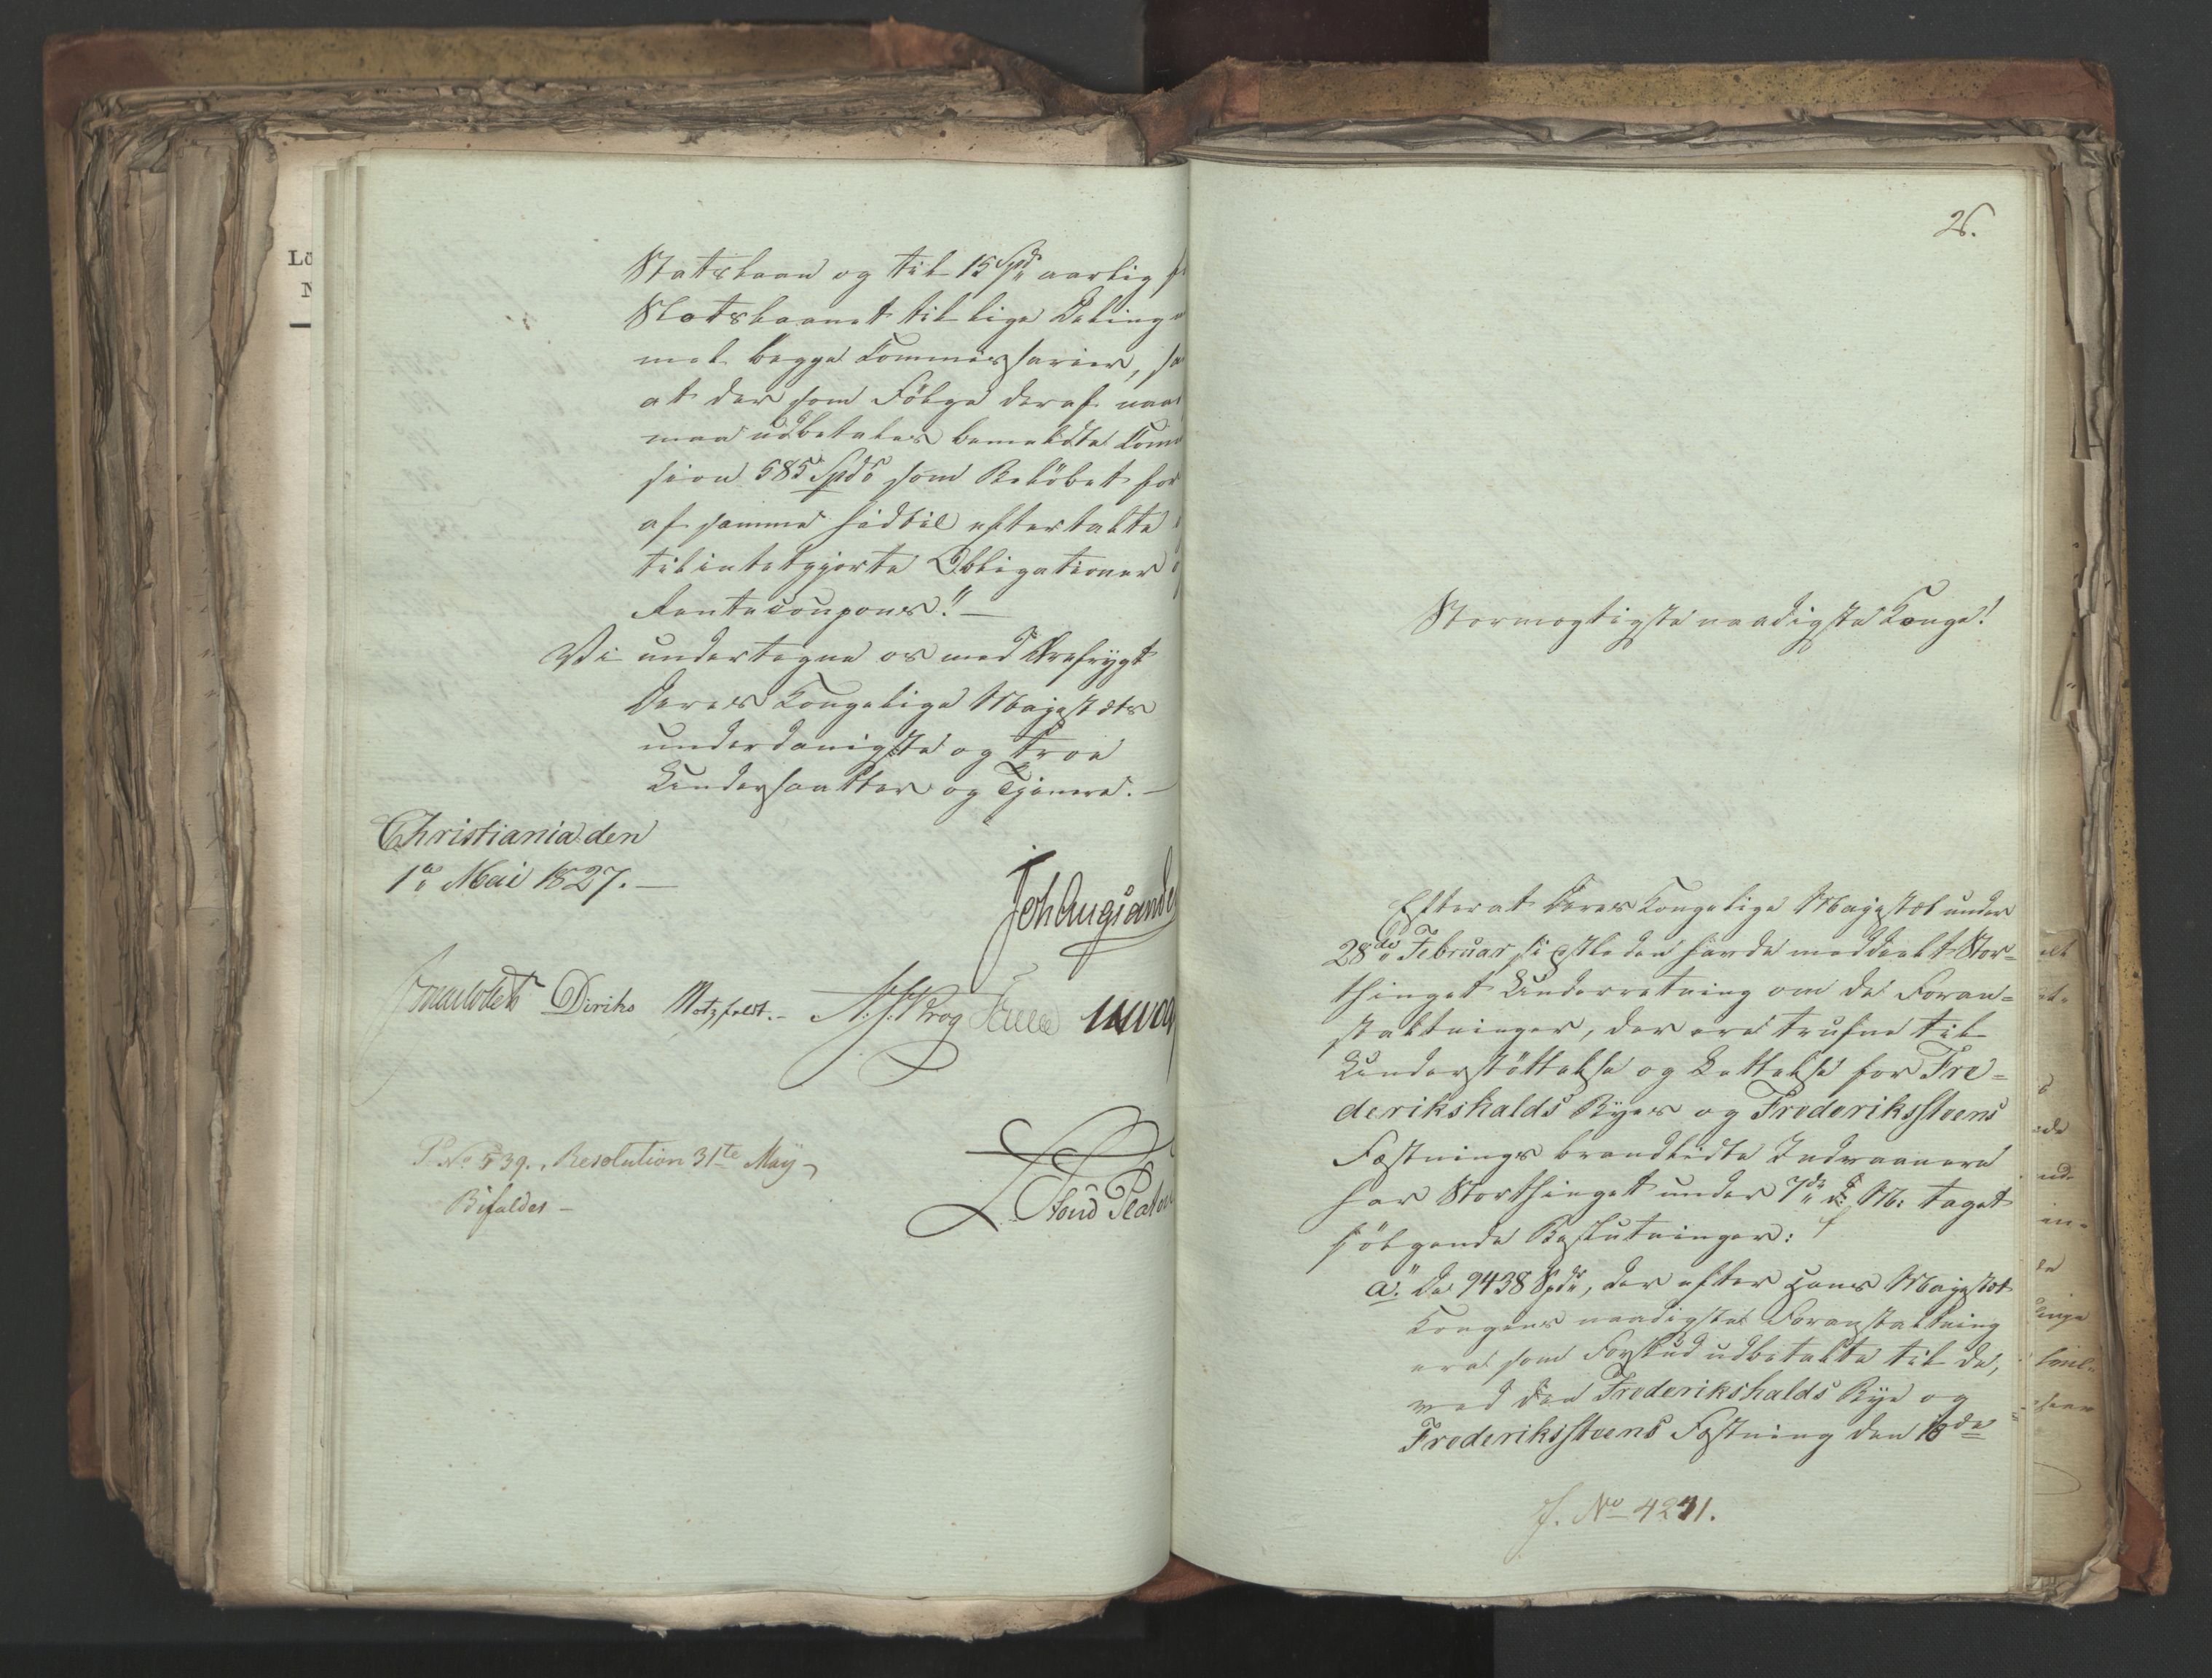 Statslaan og til 15 Spd: aarlig
Statslaanet til lige Deling
mel. begge Commissarier, saa
at der som Følge deraf naa
maa udbetales bemeldte Com
sion 585 Spd: som Beløbet for
af samme hidtil eftertalte
tilintetgjorte Obligationer
Rentecoupons." —
Vi undertegne os med Ærefrygt
Deres Kongelige Majestæts
underdanigste og troe
Undersaatter og Tjenere. —
Christiania den
1e Mai 1827. —
Joh Aug Sande
Diriks Motzfeldt. - Krog
P. No 539., Resolution 31te May,
Bifaldes —
26.
Stormægtigste naadigste Konge!
Efterat Deres Kongelige Majestæt under
28de Februar sidstleden havde meddeelt Stor=
thinget Underretning om de Foran=
staltninger, der ere trufne til
Understøttelse og Lettelse for Fre=
derikshalds Byes og Frederikssteens
Fæstnings brandlidte Indvaanere
har Storthinget under 7de d: M: taget
følgende Beslutninger:
a." De 9438 Spd:, der efter Hans Majestæt
Kongens naadigste Foranstaltning
ere som Forskud udbetalte til de,
ved den Frederikshalds Bye og
Frederikssteens Fæstning den 18de
J. No 4231.